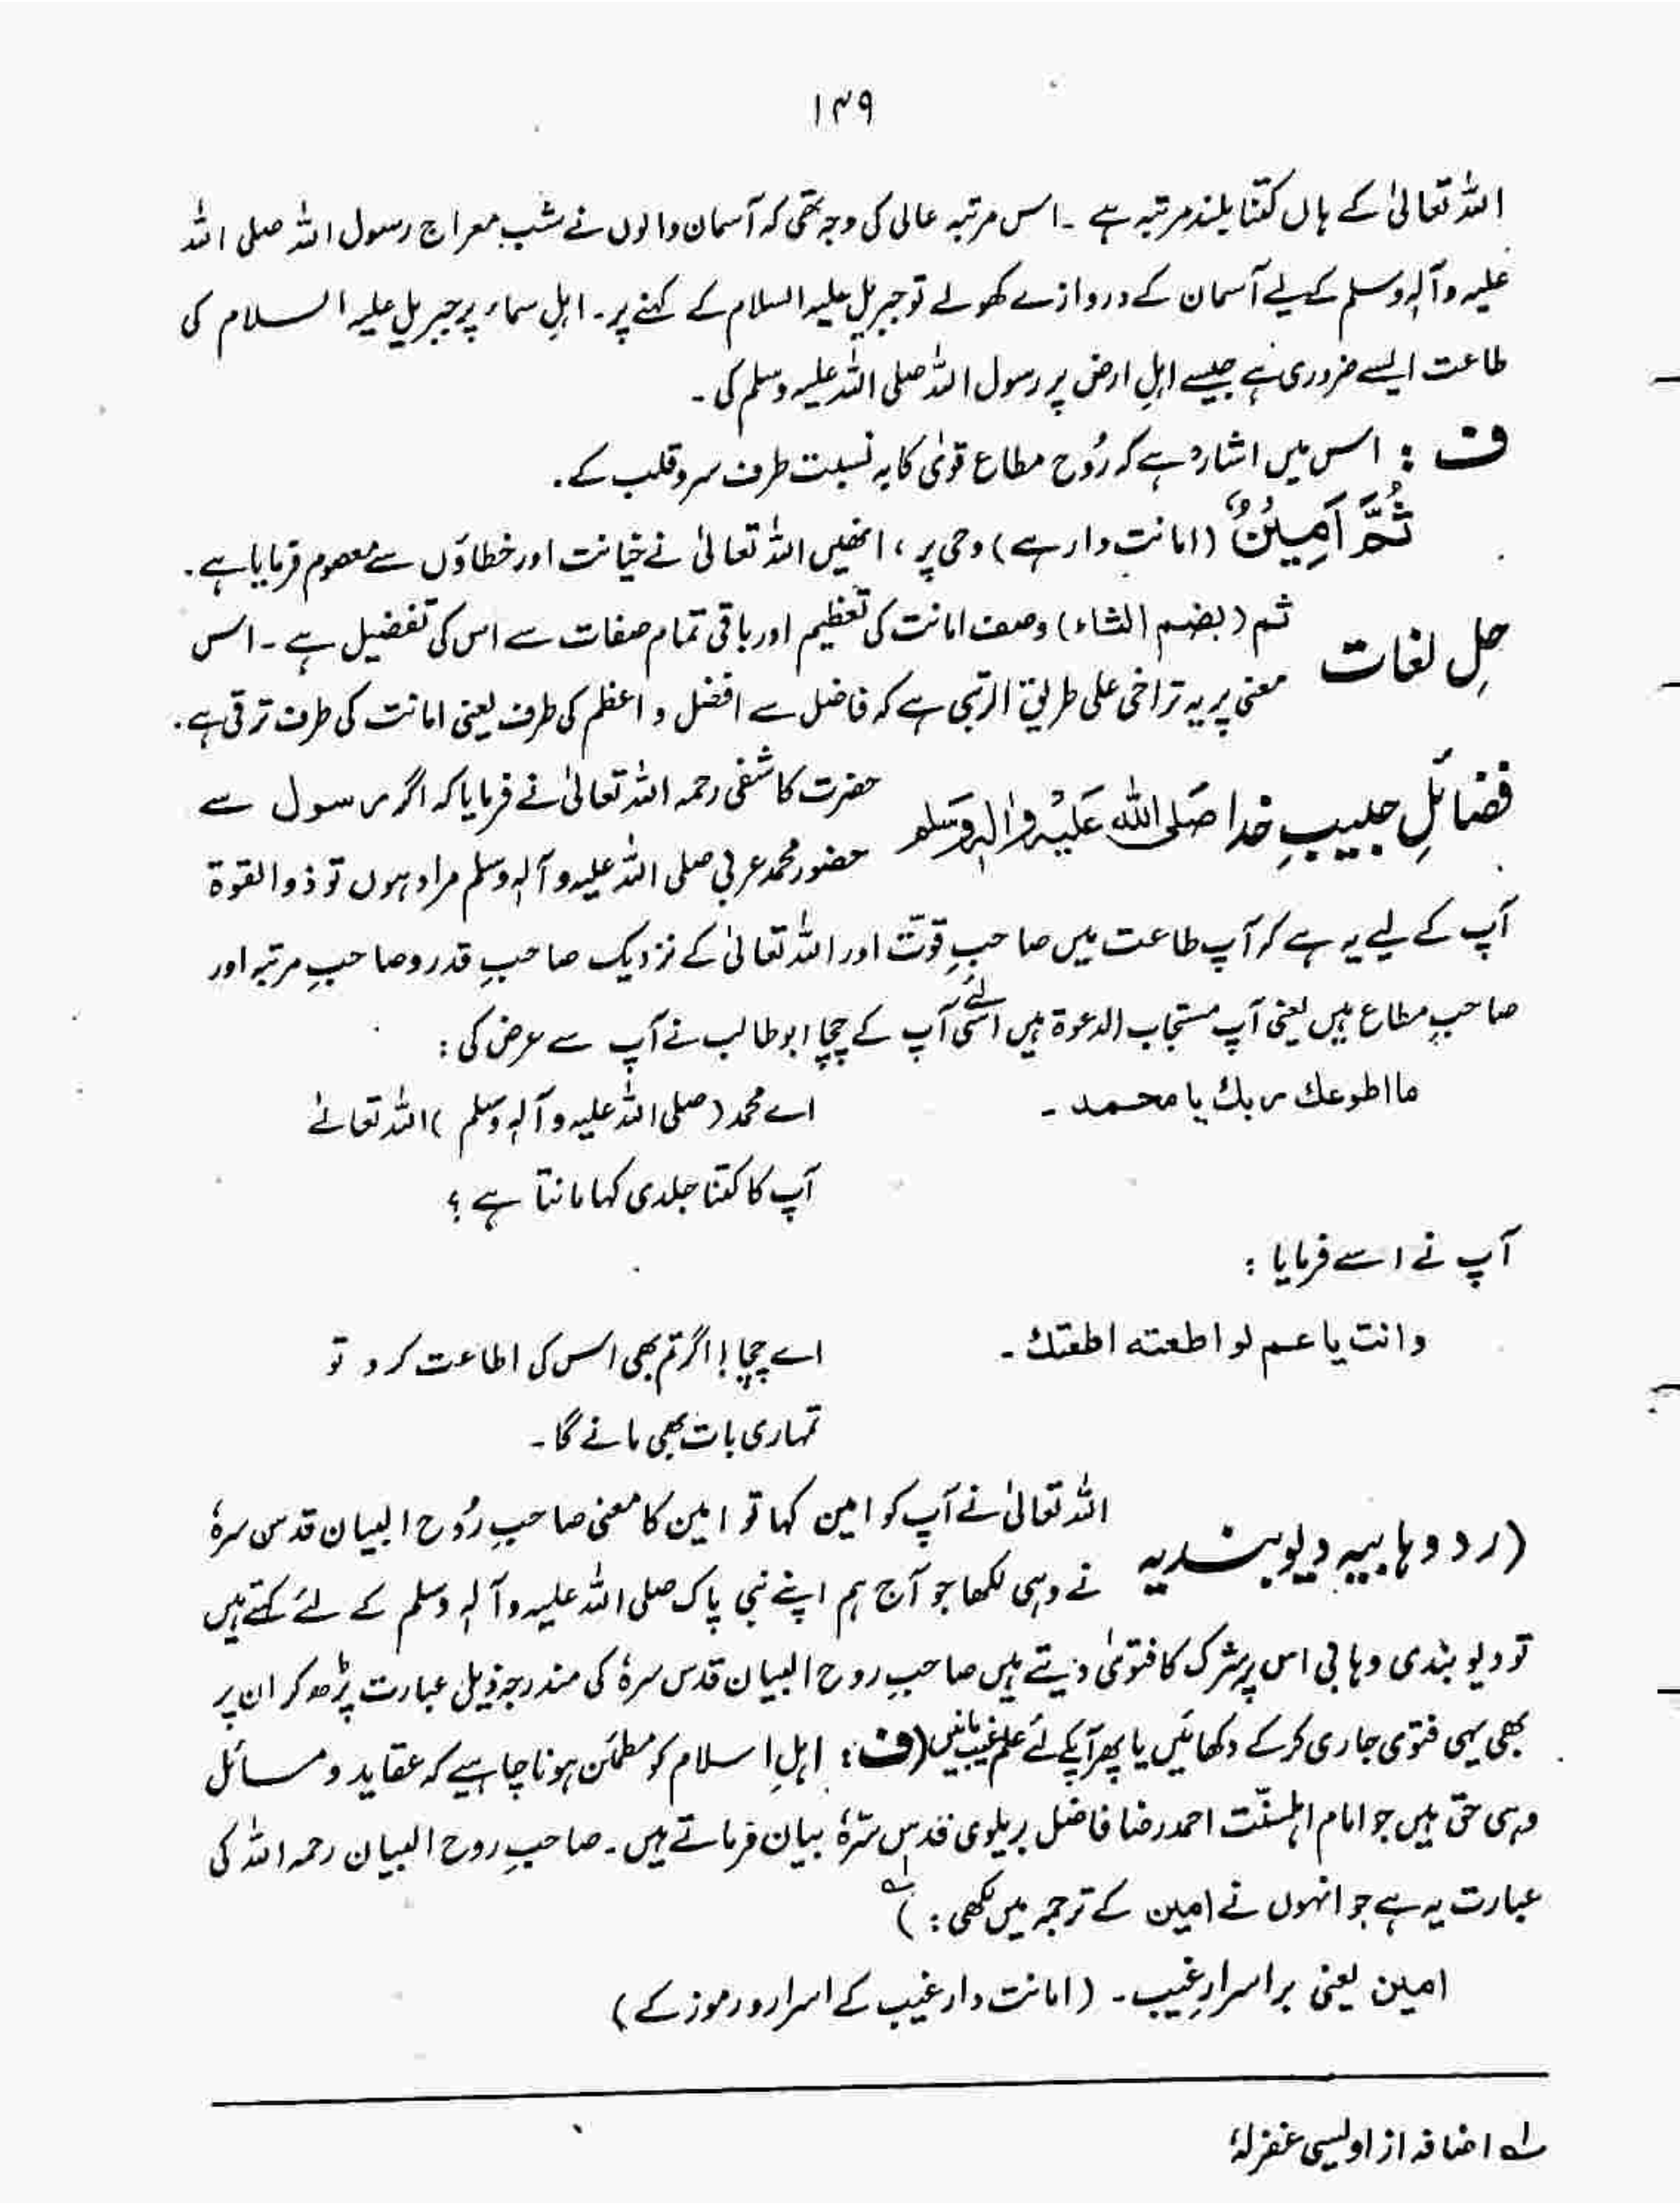 ۱۳۹
اللہ تعالیٰ کے ہاں کتنا بلند مرتبہ ہے ۔ اس مرتبہ عالی کی وجہ تھی کہ آسمان والوں نے شبِ معراج رسول اللہ صلی اللہ
علیہ وآلہ وسلم کے لیے آسمان کے دروازے کھولے تو جبریل علیہ السلام کے کہنے پر۔ اہلِ سماء پر جبریل علیہ السلام کی
طاعت ایسے ضروری ہے جیسے اہلِ ارض پر رسول اللہ صلی اللہ علیہ وسلم کی ۔
ف : اس میں اشارہ ہے کہ رُوح مطاع قویٰ کا بہ نسبت طرف سر و قلب کے ۔
ثُمَّ اَمِیْنٌ (امانت دار ہے) وحی پر ، انھیں اللہ تعالیٰ نے خیانت اور خطاؤں سے معصوم فرمایا ہے ۔
حلِ لغات ثم (بضم الثاء) وصف امانت کی تعظیم اور باقی تمام صفات سے اس کی تفضیل ہے ۔ اس
معنی پر یہ تراخی علی طریق الرتبی ہے کہ فاضل سے افضل و اعظم کی طرف یعنی امانت کی طرف ترقی ہے ۔
فضائلِ حبیبِ خدا صَلَی اللہ عَلَیْہِ وَاٰلِہٖ وَسَلم حضرت کاشفی رحمہ اللہ تعالیٰ نے فرمایا کہ اگر رسول سے
حضور محمد عربی صلی اللہ علیہ وآلہ وسلم مراد ہوں تو ذوالقوۃ
آپ کے لیے یہ ہے کہ آپ طاعت میں صاحبِ قوّت اور اللہ تعالیٰ کے نزدیک صاحبِ قدر و صاحبِ مرتبہ اور
صاحبِ مطاع ہیں یعنی آپ مستجاب الدعوۃ ہیں اسی لئے آپ کے چچا ابوطالب نے آپ سے عرض کی :
ما اطوعك ربك يا محمد ۔ اے محمد (صلی اللہ علیہ وآلہ وسلم) اللہ تعالےٰ
آپ کا کتنا جلدی کہا مانتا ہے ؟
آپ نے اسے فرمایا :
وانت يا عم لو اطعته اطعتك ۔ اے چچا ! اگر تم بھی اس کی اطاعت کرو تو
تمہاری بات بھی مانے گا ۔
(رد وہابیہ دیوبندیہ اللہ تعالیٰ نے آپ کو امین کہا تو امین کا معنی صاحبِ رُوح البیان قدس سرہٗ
نے وہی لکھا جو آج ہم اپنے نبی پاک صلی اللہ علیہ وآلہ وسلم کے لئے کہتے ہیں
تو دیوبندی وہابی اس پر شرک کا فتویٰ دیتے ہیں صاحبِ روح البیان قدس سرہٗ کی مندرجہ ذیل عبارت پڑھ کر ان پر
بھی یہی فتوی جاری کرکے دکھائیں یا پھر آپ کے لئے علم غیب مانیں (ف : اہلِ اسلام کو مطمئن ہونا چاہیے کہ عقاید و مسائل
وہی حق ہیں جو امام اہلسنّت احمد رضا فاضل بریلوی قدس سرّہٗ بیان فرماتے ہیں ۔ صاحبِ روح البیان رحمہ اللہ کی
عبارت یہ ہے جو انہوں نے امین کے ترجمہ میں لکھی : ) لہ
امین یعنی بر اسرارِ غیب ۔ (امانت دار غیب کے اسرار و رموز کے)
لہ اضافہ از اویسی غفرلہٗ